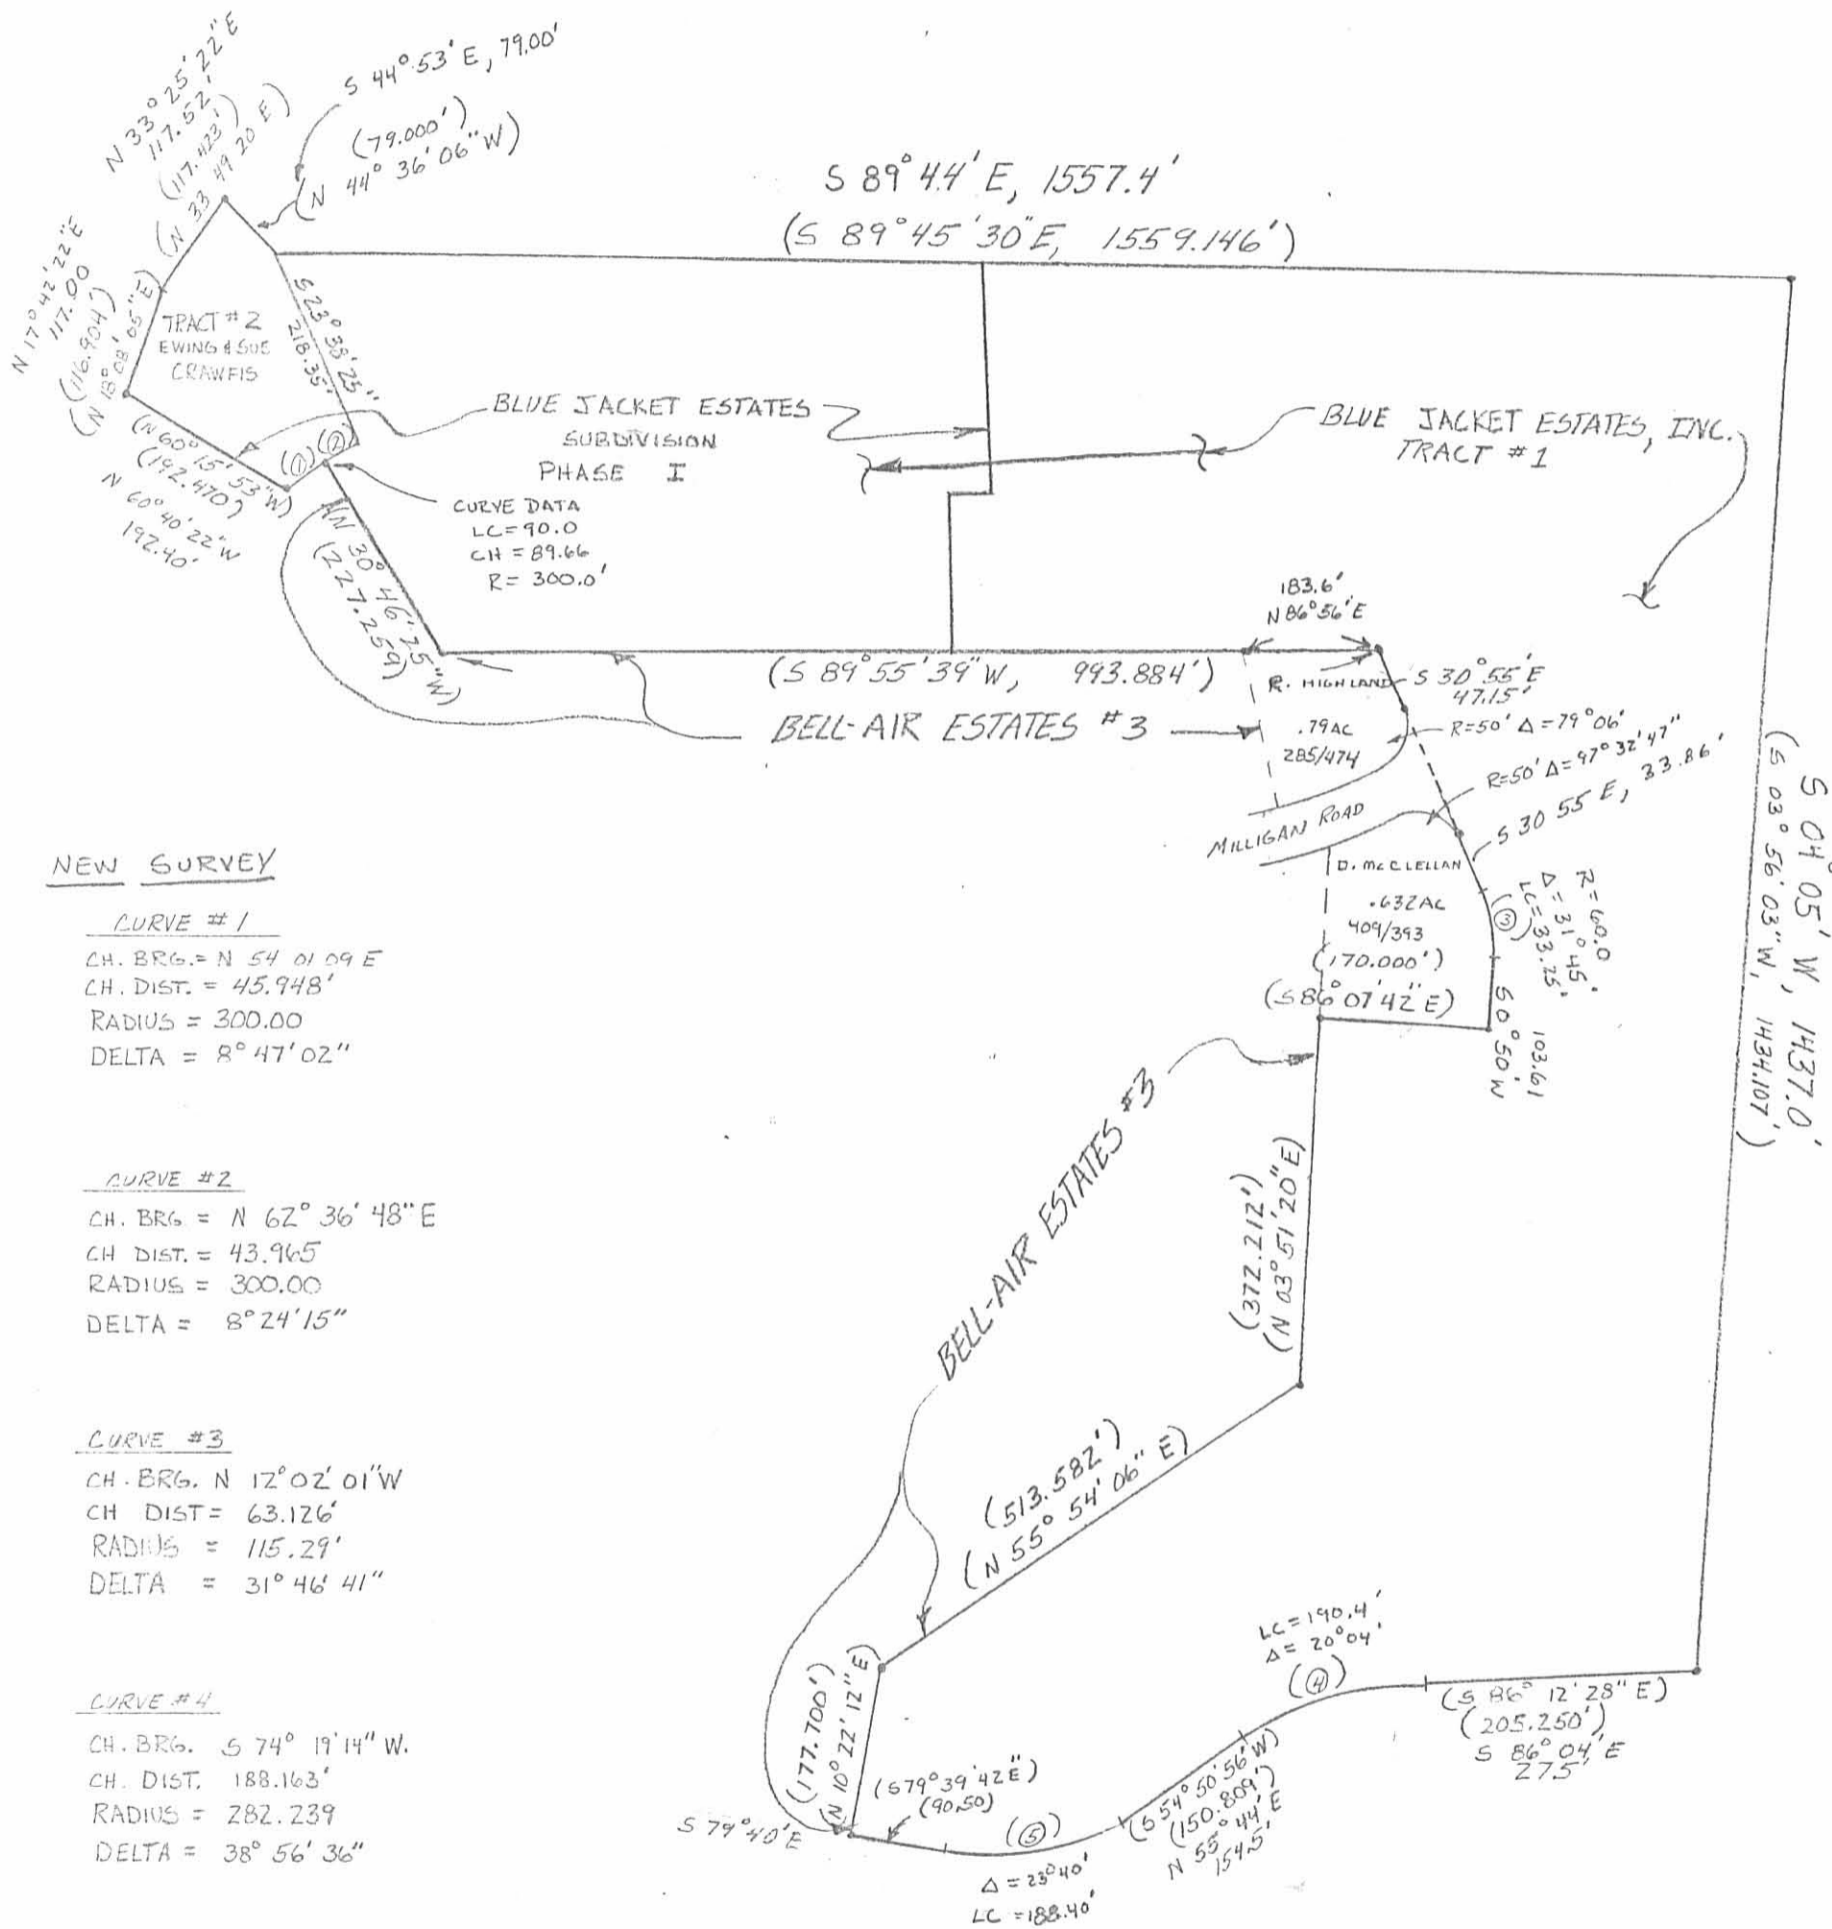 N 33° 25' 22" E
117.52'
(117.423')
(N 33 49 20 E)
S 44° 53' E, 79.00'
(79.000')
(N 44° 36' 06" W)
S 89° 44' E, 1557.4'
(S 89° 45' 30" E, 1559.146')
N 17° 42' 22" E
117.00
(116.904')
(N 18° 08' 05" E)
TRACT #2
EWING & SUE
CRAWFIS
S 23° 38' 25"
218.35'
(N 60° 15' 53" W)
(192.470')
N 60° 40' 22" W
192.40'
(1)
(2)
BLUE JACKET ESTATES
SUBDIVISION
PHASE I
BLUE JACKET ESTATES, INC.
TRACT #1
CURVE DATA
LC = 90.0
CH = 89.66
R = 300.0'
(N 30° 46' 25" W)
(227.259)
183.6'
N 86° 56' E
(S 89° 55' 39" W, 993.884')
BELL-AIR ESTATES #3
R. HIGHLAND
.79AC
285/474
S 30° 55' E
47.15'
R=50' Δ=79° 06'
R=50' Δ=97° 32' 47"
S 30 55 E, 33.86'
MILLIGAN ROAD
D. McCLELLAN
.632AC
409/393
(170.000')
(S 86° 07' 42" E)
(3)
R = 60.0
Δ = 31° 45'
LC = 33.25'
103.61
S 0° 50 W
S 04° 05' W, 1437.0'
(S 03° 56' 03" W, 1434.107')
NEW SURVEY
CURVE #1
CH. BRG. = N 54 01 09 E
CH. DIST. = 45.948'
RADIUS = 300.00
DELTA = 8° 47' 02"
CURVE #2
CH. BRG = N 62° 36' 48" E
CH DIST. = 43.965
RADIUS = 300.00
DELTA = 8° 24' 15"
CURVE #3
CH. BRG. N 12° 02' 01" W
CH DIST = 63.126'
RADIUS = 115.29'
DELTA = 31° 46' 41"
CURVE #4
CH. BRG. S 74° 19' 14" W.
CH. DIST. 188.163'
RADIUS = 282.239
DELTA = 38° 56' 36"
BELL-AIR ESTATES #3
(372.212')
(N 03° 51' 20" E)
(513.582')
(N 55° 54' 06" E)
(177.700')
(N 10° 22' 12" E)
S 79° 40' E
(S 79° 39' 42 E")
(90.50)
(5)
Δ = 23° 40'
LC = 188.40'
(S 54° 50' 56" W)
(150.809')
N 55° 44' E
154.5'
LC = 190.4'
Δ = 20° 04'
(4)
(S 86° 12' 28" E)
(205.250')
S 86° 04' E
275'